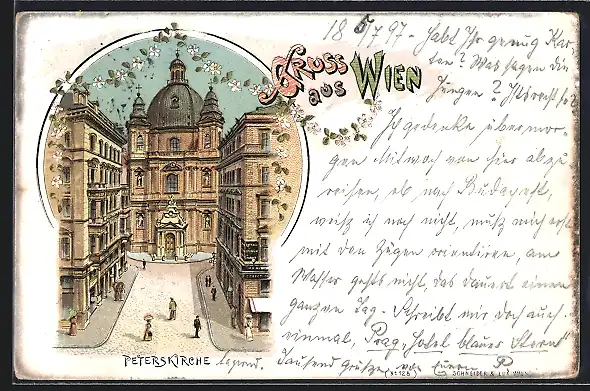 18 5/7 97. Habt Ihr genug Kar-
ten? Was sagen die
Jungen?
GRUSS
aus WIEN
Ich gedenke übermor-
gen Mittwoch von hier abzu-
reisen, ob nach Budapest,
weiß ich noch nicht, muß mich erst
mit den Zügen orientiren, am
Wasser gehts nicht, das dauert einen
ganzen Tag. Schreibt mir doch auch
einmal, Prag, Hotel blauer Stern"
Tausend Grüße von Eurem P
PETERSKIRCHE
(No 128)
SCHNEIDER & LUX, WIEN